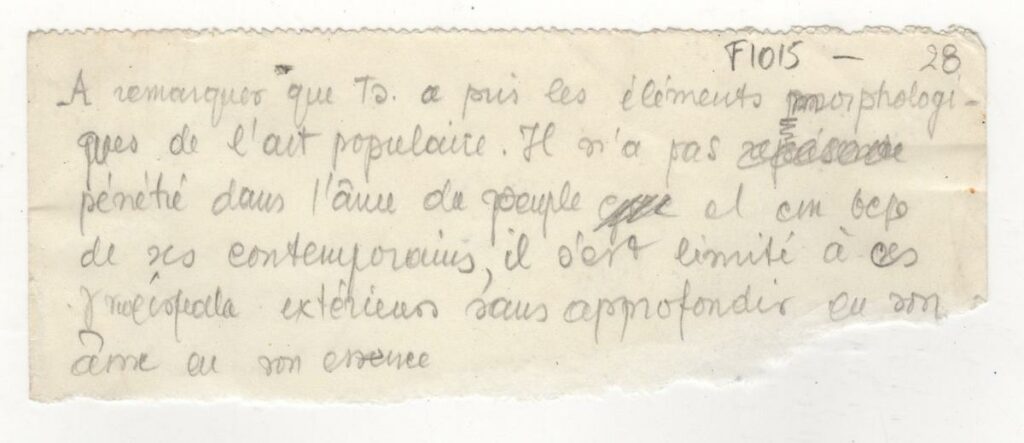 F1015 — 28
A remarquer que Ts. a pris les éléments morphologi-
ques de l'art populaire. Il n'a pas
pénétré dans l'âme du peuple et cm bcp
de ses contemporains, il s'est limité à ces
extérieurs sans approfondir ou son
âme ou son essence